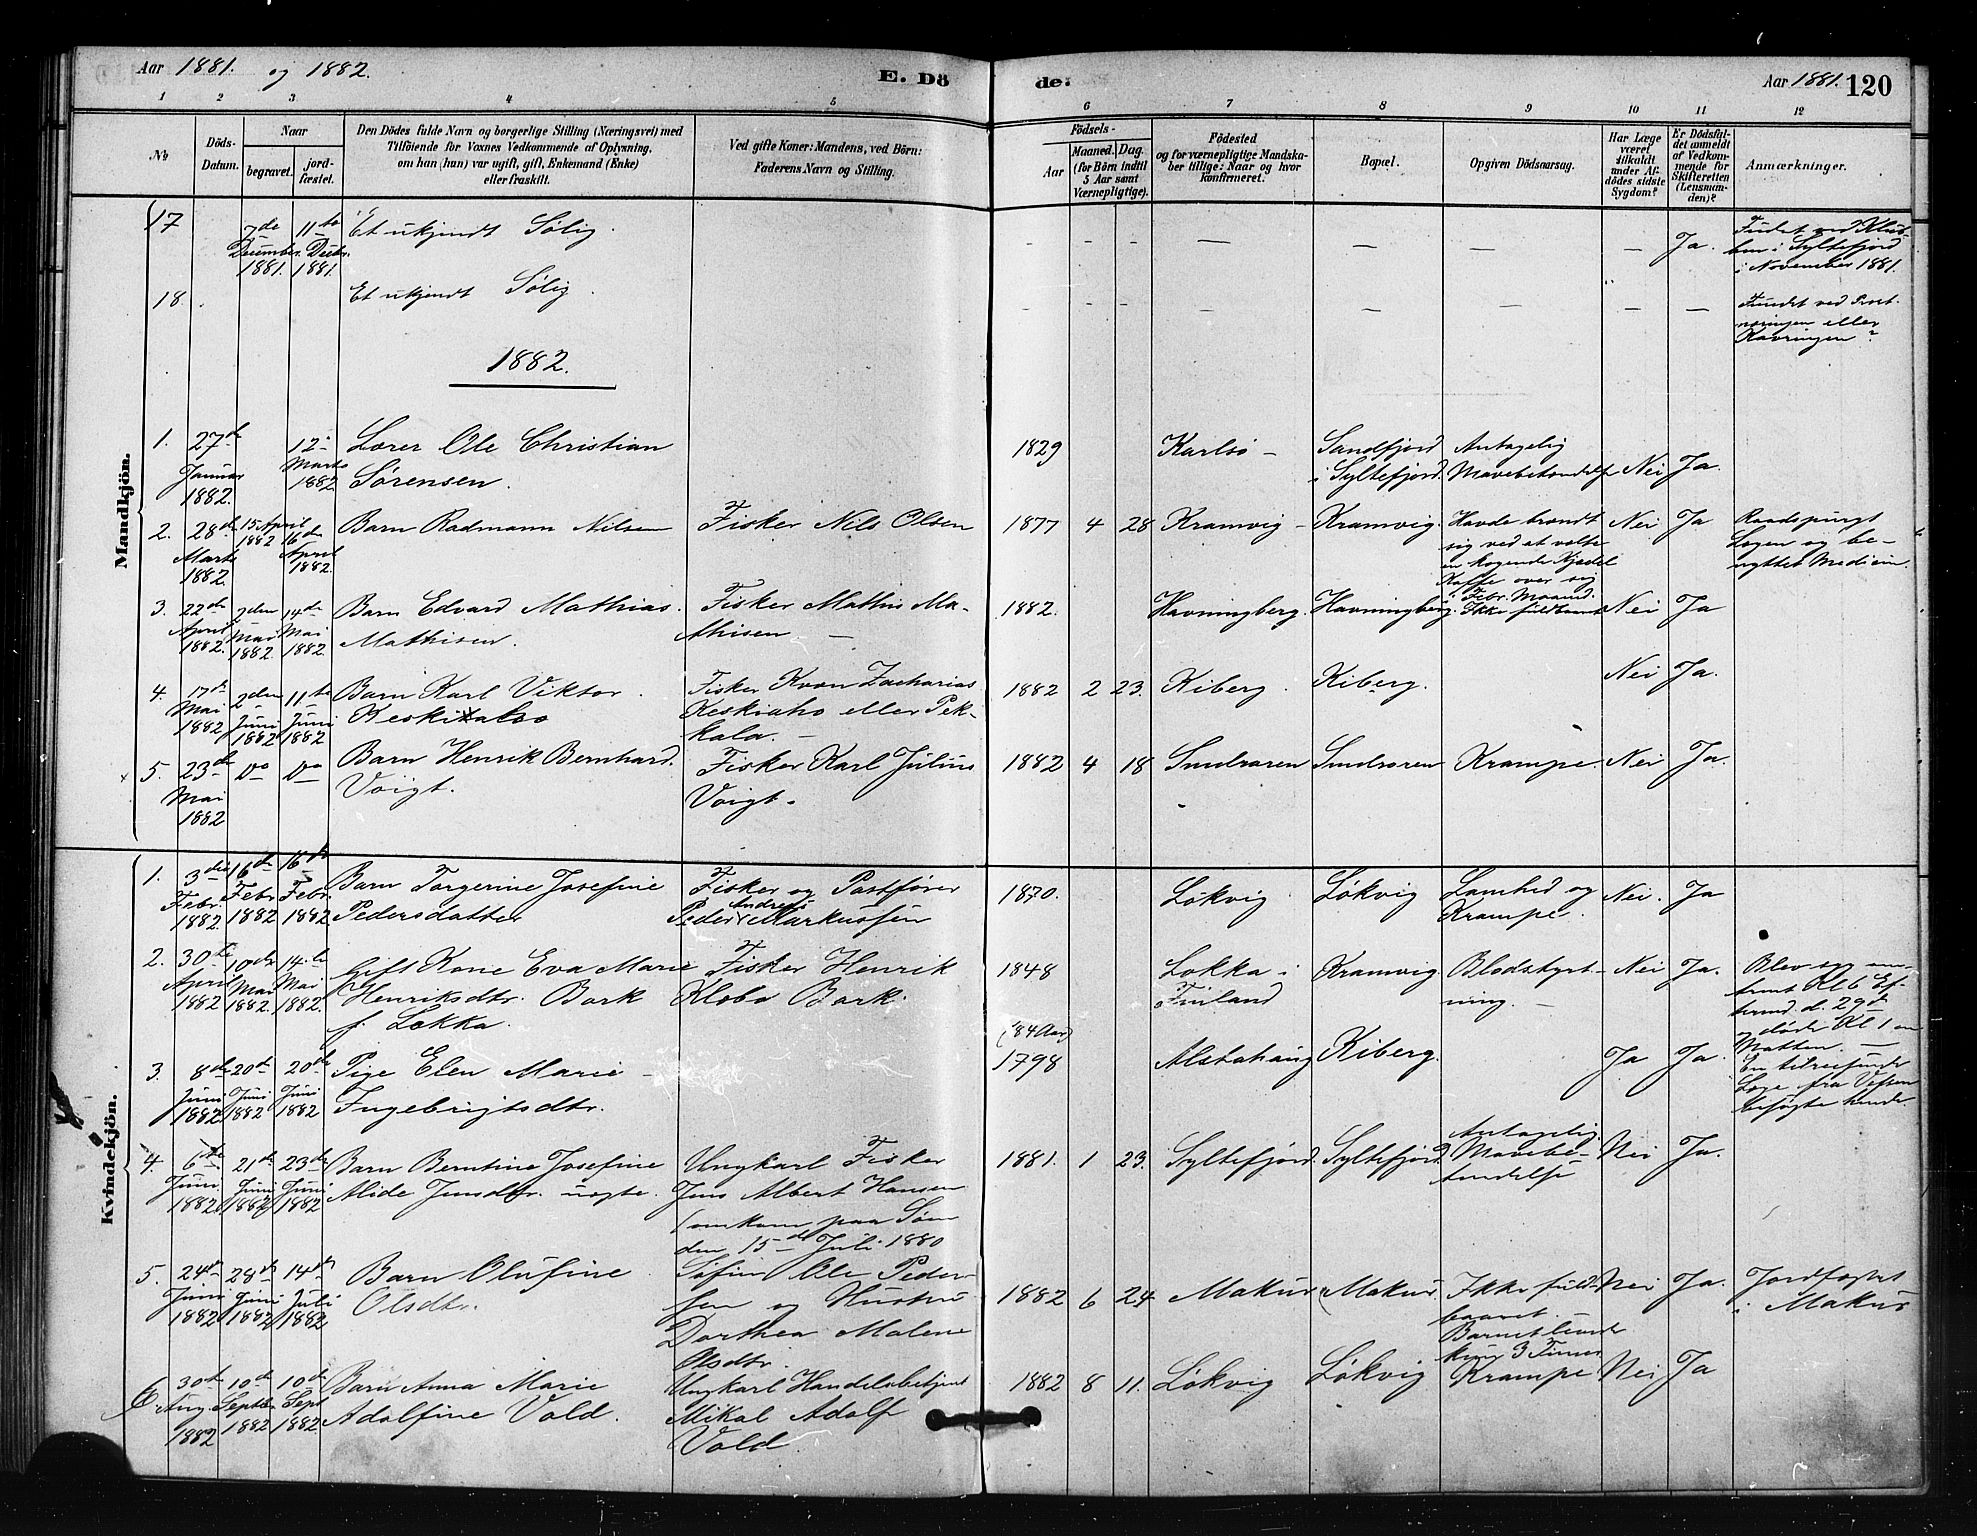 Aar 1881. og 1882.
E. Dö
de.
Aar 1881. 120
1 2 3 4 5 6 7 8 9 10 11 12
№
Döds-Datum.
Naar
begravet.
jord-fæstet.
Den Dödes fulde Navn og borgerlige Stilling (Næringsvei) med
Tilföiende for Voxnes Vedkommende af Oplysning,
om han (hun) var ugift, gift, Enkemand (Enke)
eller fraskilt.
Ved gifte Koner: Mandens, ved Börn:
Faderens Navn og Stilling.
Födsels-
Aar
Maaned. Dag.
(for Börn indtil
5 Aar samt
Værnepligtige).
Födested
og for værnepligtige Mandska-
ber tillige: Naar og hvor
konfirmeret.
Bopæl.
Opgiven Dödsaarsag.
Har Læge
været
tilkaldt
under Af-
dödes sidste
Sygdom?
Er Dödsfal-
det anmeldt
af Vedkom-
mende for
Skifteretten
(Lensman-
den)?
Anmærkninger.
Mandkjön.
17
7de December 1881.
11te Decbr. 1881.
Et ukjendt Sølig.
- - — — — — Ja.
Fundet ved
i Syltefjord
i November 1881.
18.
Et ukjendt Sølig.
- - - — — — — —
Fundet ved
eller
Kavringen?
1882.
1. 27de Januar 1882.
12- Marts 1882
Lærer Ole Christian
Sørensen.
1829
Karlsø -
Sandfjord
i Syltefjord.
Antagelig
Mavebetændelse
Nei Ja
2. 28de Marts 1882.
15 April 1882
16de April 1882.
Barn Radmann Nilsen
Fisker Nils Olsen
1877 4 28
Kramvig -
Kramvig.
Havde brændt
sig ved at vælte
en kogende Kjedel
Kaffe over sig
i Febr. Maaned.
Nei Ja
Raadspurgt
Lægen og be-
nyttet Medicin.
3. 22de April 1882.
2den Mai 1882.
14de Mai 1882.
Barn Edvard Mathias
Mathisen.
Fisker Mathis Ma-
thisen —
1882.
Havningberg.
Havningberg.
Ikke fuldbaaret
Nei Ja
4. 17de Mai 1882
2den Juni 1882
11te Juni 1882
Barn Karl Viktor
Keskitalo
Fisker Kvæn Zacharias
Keskiaho eller Pek-
kala. —
1882 2 23.
Kiberg.
Kiberg.
Nei Ja.
x 5. 23de Mai 1882
Do Do
Barn Henrik Bernhard
Voigt.
Fisker Karl Julius
Voigt.
1882 4 18
Smelroren
Smelroren
Krampe.
Nei Ja.
Kvindekjön.
1. 3die Febr. 1882
16de Febr 1882
16de Febr 1882.
Barn Torgerine Josefine
Pedersdatter
Fisker og Postfører
Peder Andreas Markussen
1870.
Løkvig
Løkvig
Lamhed og
Krampe.
Nei. Ja
2. 30te April 1882
10de Mai 1882.
14de Mai 1882.
Gift Kone Eva Marie
Henriksdtr. Bork
f. Lokka.
Fisker Henrik
Klobo Bork.
1848
Lokka i
Finland
Kramvig.
Blodstyrt-
ning. —
Nei Ja.
Blev syg om-
trent Kl 6 Ef-
term. d. 29de
og døde Kl 1 om
Natten. —
3. 8de Juni 1882.
20de Juni 1882
20de Juni 1882
Pige Elen Marie -
Ingebrigtsdtr.
(84 Aar)
1798
Alstahaug
Kiberg.
Ja Ja.
En tilreisende
Læge fra Vesten
besøgte hende
4. 6te Juni 1882.
21de Juni 1882
23de Juni 1882
Barn Berntine Josefine
Alide Jensdtr. uægte.
Ungkarl Fisker
Jens Albert Hansen
(omkom paa Søen
den 15de Juli 1880
1881. 1 23.
Syltefjord.
Syltefjord.
Antagelig
Mavebe-
tændelse
Nei Ja.
5. 24de Juni 1882
28de Juni 1882
14de Juli 1882
Barn Olufine
Olsdtr.
Søfin Ole Peder-
sen og Hustru
Dorthea Malene
Olsdtr.
1882 6 24
Makur
Makur
Ikke fuld-
baaret.
Barnet levede
kun 3 Timer
Nei Ja.
Jordfæstet
i Makur
6. 30de Aug. 1882
10de Septbr 1882
10de Sept 1882
Barn Anna Marie
Adolfine Vold.
Ungkarl Handelsbetjent
Mikal Adolf
Vold.
1882 8 11.
Løkvig
Løkvig
Krampe
Nei Ja